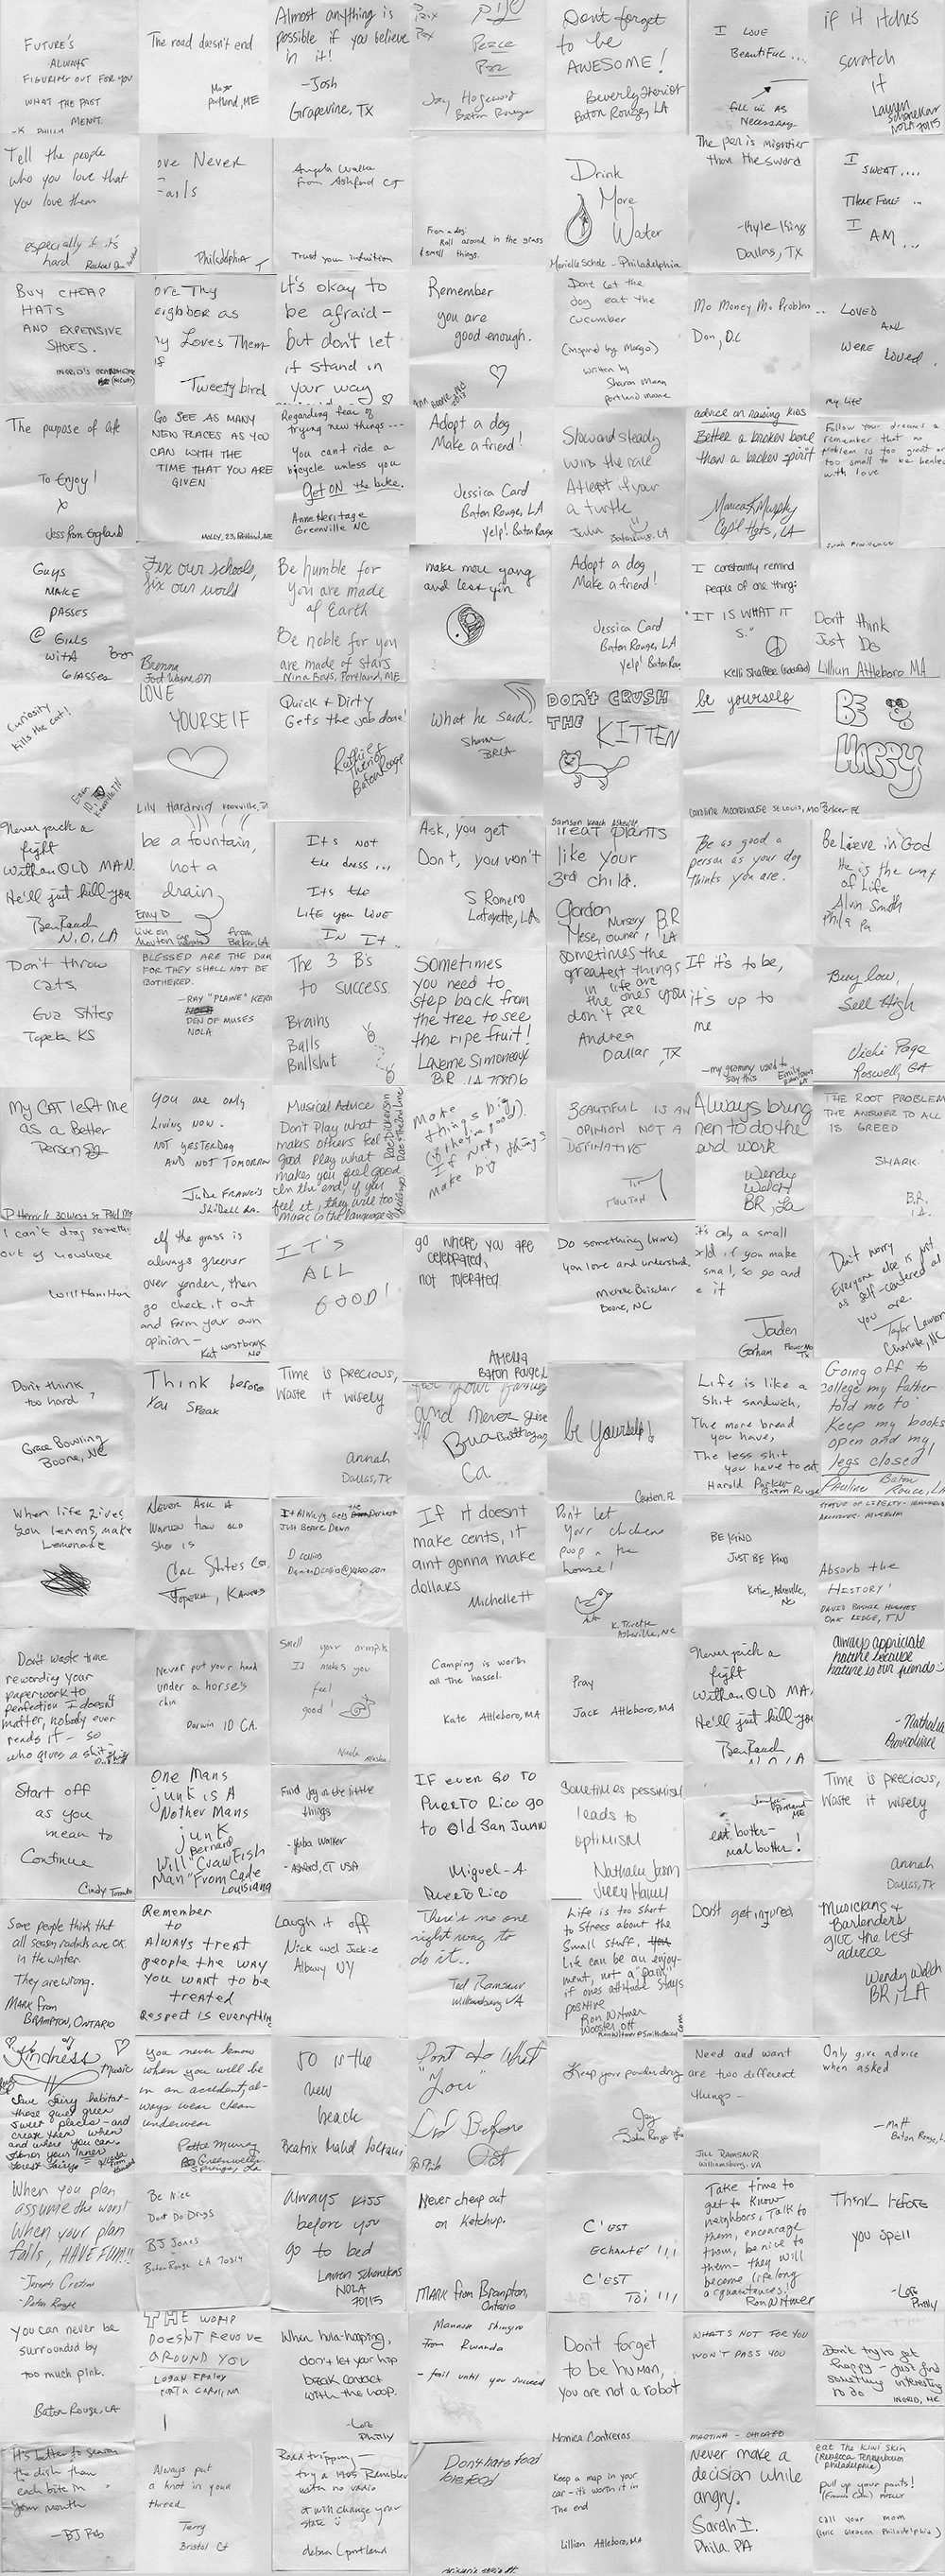 FUTURE'S
ALWAYS
FIGURING OUT FOR YOU
WHAT THE PAST
MEANT.
The road doesn't end
Portland, ME
Almost anything is
possible if you believe
in it!
-Josh
Grapevine, TX
Peace
Paz
Baton Rouge
Don't forget
to be
AWESOME!
Beverly Heriot
Baton Rouge, LA
I LOVE
BEAUTIFUL....
fill in AS
NECESSARY
if it itches
scratch
it
Lauren
NOLA 70115
Tell the people
who you love that
you love them
especially if it's
hard
ove Never
ails
Philadelphia
Angela Walker
from Ashford CT
Trust your intuition
From a dog:
Roll around in the grass
& smell things.
Drink
More
Water
Marielle Scholz - Philadelphia
The pen is mightier
than the sword
-Kyle King
Dallas, TX
I
SWEAT....
THEREFORE ..
I
AM...
BUY CHEAP
HATS
AND EXPENSIVE
SHOES.
INGRID'S GRANDMOTHER
ove Thy
eighbor as
y Loves Them
lf
Tweety bird
It's okay to
be afraid-
but don't let
it stand in
your way
Remember
you are
good enough.
Dont let the
dog eat the
cucumber
(inspired by Margo)
written by
Sharon Mann
portland maine
Mo Money Mo Problem..
Don, D.C
LOVED
AND
WERE Loved.
my life
The purpose of life
To Enjoy!
x
Jess from England
GO SEE AS MANY
NEW PLACES AS YOU
CAN WITH THE
TIME THAT YOU ARE
GIVEN
MOLLY, 23, Portland, ME
Regarding fear of
trying new things---
You can't ride a
bicycle unless you
Get ON the bike.
Anne Heritage
Greenville NC
Adopt a dog
Make a friend!
Jessica Card
Baton Rouge, LA
Yelp! Baton Rouge
Slow and steady
wins the race
At least if your
a turtle
Julia
Baton Rouge, LA
advice on raising kids
Better a broken bone
than a broken spirit
Monica K Murphy
Cap'l Hgts, LA
Follow your dreams &
remember that no
problem is too great or
too small to be healed
with love
Guys
MAKE
PASSES
@ GIRLS
WITH
GLASSES
Fix our schools,
fix our world
Brenna
Fort Wayne, IN
Be humble for
you are made
of Earth
Be noble for you
are made of stars
Nina Boys, Portland, ME
make more yang
and less yin
Adopt a dog
Make a friend!
Jessica Card
Baton Rouge, LA
Yelp! Baton Rou
I constantly remind
people of one thing:
"IT IS WHAT IT
S."
Kelli Shaffer
Don't think
Just Do
Lillian Attleboro MA
Curiosity
Kills the cat!
LOVE
YOURSELF
Lily Hardwig Knoxville, T
Quick & Dirty
Gets the job done!
Baton Rouge
What he said.
Sharon
BRLA
DON'T CRUSH
THE
KITTEN
be yourself
Caroline Moorehouse St Louis, Mo
BE
HAPPY
Parker FL
Never pick a
fight
With an OLD MAN.
He'll just kill you
Ben Reed
N.O, LA
be a fountain,
not a
drain
Emy D
from
Baker, LA
It's not
the dress...
Its the
LIFE you LIVE
IN It..
Ask, you get
Don't, you won't
S Romero
Lafayette, LA
Treat plants
like your
3rd child.
Gordon
Mese, owner,
Nursery B.R
LA
Be as good a
person as your dog
thinks you are.
Believe in God
He is the way
of Life
Alvin Smith
Phila Pa
Don't throw
cats.
Eva Stites
Topeka KS
BLESSED ARE THE DUM
FOR THEY SHALL NOT BE
BOTHERED.
-RAY "PLAINE" KERN
DEN OF MUSES
NOLA
The 3 B's
to success.
Brains
Balls
Bullshit
Sometimes
you need to
step back from
the tree to see
the ripe fruit!
Laverne Simoneaux
B.R. LA 70806
sometimes the
greatest things
in life are
the ones you
don't see
Andrea
Dallas, TX
If it's to be,
it's up to
me
-my grammy used to
say this
Buy low,
Sell High
Vicki Page
Roswell, GA
My CAT left me
as a Better
Person
You are only
Living now -
NOT YESTERDAY
AND NOT TOMORROW
Jude FRANCIS
Slidell La.
Musical Advice
Don't Play what
makes others feel
good Play what
makes you feel good
In the end, if you
feel it, they will too
Music is the language
of feelings
Make
things big
(if they're good).
If not, things
make
BEAUTIFUL IS AN
OPINION NOT A
DEFINATIVE
Always bring
men to do the
hard work
Wendy
Welch
BR, La
THE ROOT PROBLEM
THE ANSWER TO ALL
IS GREED
SHARK.
B.R.
LA.
I can't drag something
out of nowhere
Will Hamilton
If the grass is
always greener
over yonder, then
go check it out
and form your own
opinion -
IT'S
ALL
GOOD!
go where you are
celebrated,
not tolerated.
Amelia
Baton Rouge
Do something (work)
you love and understand.
Michelle Boisclair
Boone, NC
It's only a small
orld if you make
small, so go and
e it
Jaden
Gorham
Don't worry
Everyone else is just
as self-centered as
you are.
Taylor
Charlotte, NC
Don't think
too hard
Grace Bowling
Boone, NC
Think before
You SPeaK
Time is precious,
Waste it wisely
annah
Dallas, TX
and never give
up
Ca.
be yourself!
Life is like a
shit sandwich.
The more bread
you have,
The less shit
you have to eat.
Harold Parker
Baton Rouge
Going off to
college my father
told me to
Keep my books
open and my
legs closed!
Pauline
Baton
Rouge, LA
When life gives
you lemons, make
Lemonade
Never Ask A
Woman how old
She is
Cal Stites
Topeka, Kansas
It Always gets the Darkest
Just Before Dawn
D Collins
If it doesn't
make cents, it
aint gonna make
dollars
Michelle H
Don't let
your chickens
poop in the
house!
K. Trivette
Asheville, NC
BE KIND
JUST BE KIND
Katie, Asheville,
NC
Absorb the
HISTORY!
DAVID BASHER HUGHES
OAK RIDGE, TN
Don't waste time
rewording your
paperwork to
perfection. It doesn't
matter, nobody ever
reads it - so
who gives a shit-
Never put your hand
under a horse's
chin
Darwin ID CA.
Smell your armpits
It makes you
feel
good
Nicole
Camping is worth
all the hassel.
Kate Attleboro, MA
Pray
Jack Attleboro, MA
Never pick a
fight
With an OLD MA
He'll just kill you
Ben Reed
always appriciate
nature because
nature is our friends
-Nathalia
Providence
Start off
as you
mean to
Continue
Cindy Toronto
One Mans
junk is A
Nother Mans
junk
Bernard
Will "CrawFish
Man" From Cade
Louisiana
Find joy in the little
things
-Yuba Walker
-Ashford, CT USA
IF ever Go TO
Puerto Rico go
to Old San Juan
Miguel-A
Puerto Rico
Sometimes pessimism
leads to
optimism
eat butter-
real butter!
Time is precious,
Waste it wisely
annah
Dallas, TX
Some people think that
all season radials are OK
in the winter.
They are wrong.
MARK from
BRAMPTON, ONTARIO
Remember
to
ALWAYS treat
people the way
You want to be
treated
Respect is everything
Laugh it off
Nick and Jackie
Albany NY
There's no one
right way to
do it..
Ted Ramsaur
Williamsburg VA
Life is too short
to stress about the
small stuff.
Life can be an enjoy-
ment, not a "pain",
if ones attitude stays
positive
Ron Witmer
Wooster, OH
Don't get injured.
Musicians &
Bartenders
give the best
advice
Wendy Welch
BR, LA
Kindness
Music
Save fairy habitat-
those quiet green
sweet places - and
create them when
and where you can.
You never know
when you will be
in an accident, al-
ways wear clean
underwear
Pette Murray
Greenwell
Springs, La
50 is the
new
beach
Don't do What
"You"
Did Before
Keep your powder dry
Jay
Baton Rouge
Need and want
are two different
things -
JILL RAMSAUR
Williamsburg, VA
Only give advice
when asked
-Matt
Baton Rouge, L
When you plan
assume the worst
When your plan
fails, HAVE FUN!!
-Joseph Cretini
-Baton Rouge
Be Nice
Dont Do Drugs
BJ Jones
Baton Rouge LA
Always KISS
before you
go to bed
Lauren
NOLA
70115
Never cheap out
on Ketchup.
MARK from Brampton,
Ontario
C'EST
ECHANTÉ !!!
C'EST
TOi !!!
Take time to
get to know
neighbors, Talk to
them, encourage
them, be nice to
them - they will
become lifelong
acquaintances.
Ron Witmer
Think before
you spell
-Lois
Philly
You can never be
surrounded by
too much pink.
Baton Rouge, LA
THE WORLD
DOESN'T REVOLVE
AROUND YOU
When hula-hooping,
don't let your hip
break contact
with the hoop.
-Lois
Philly
From Rwanda
- fail until you succeed
Don't forget
to be human,
you are not a robot
Monica Contreras
WHAT'S NOT FOR YOU
WON'T PASS YOU
MARTINA - CHICAGO
Don't try to get
happy - just find
something interesting
to do
INGRID, ME
It's better to season
the dish than
each bite in
your mouth
-BJ
Always put
a knot in your
thread
Terry
Bristol Ct
Road tripping -
try a 1965 Rambler
with no radio
it will change your
state
debra (portland
Don't hate food
Keep a map in your
car - it's worth it in
The end
Lillian Attleboro, MA
Never make a
decision while
angry.
Sarah I.
Phila. PA
eat The Kiwi skin
(Rebecca Tennenbaum
Philadelphia)
pull up your pants!
call your mom